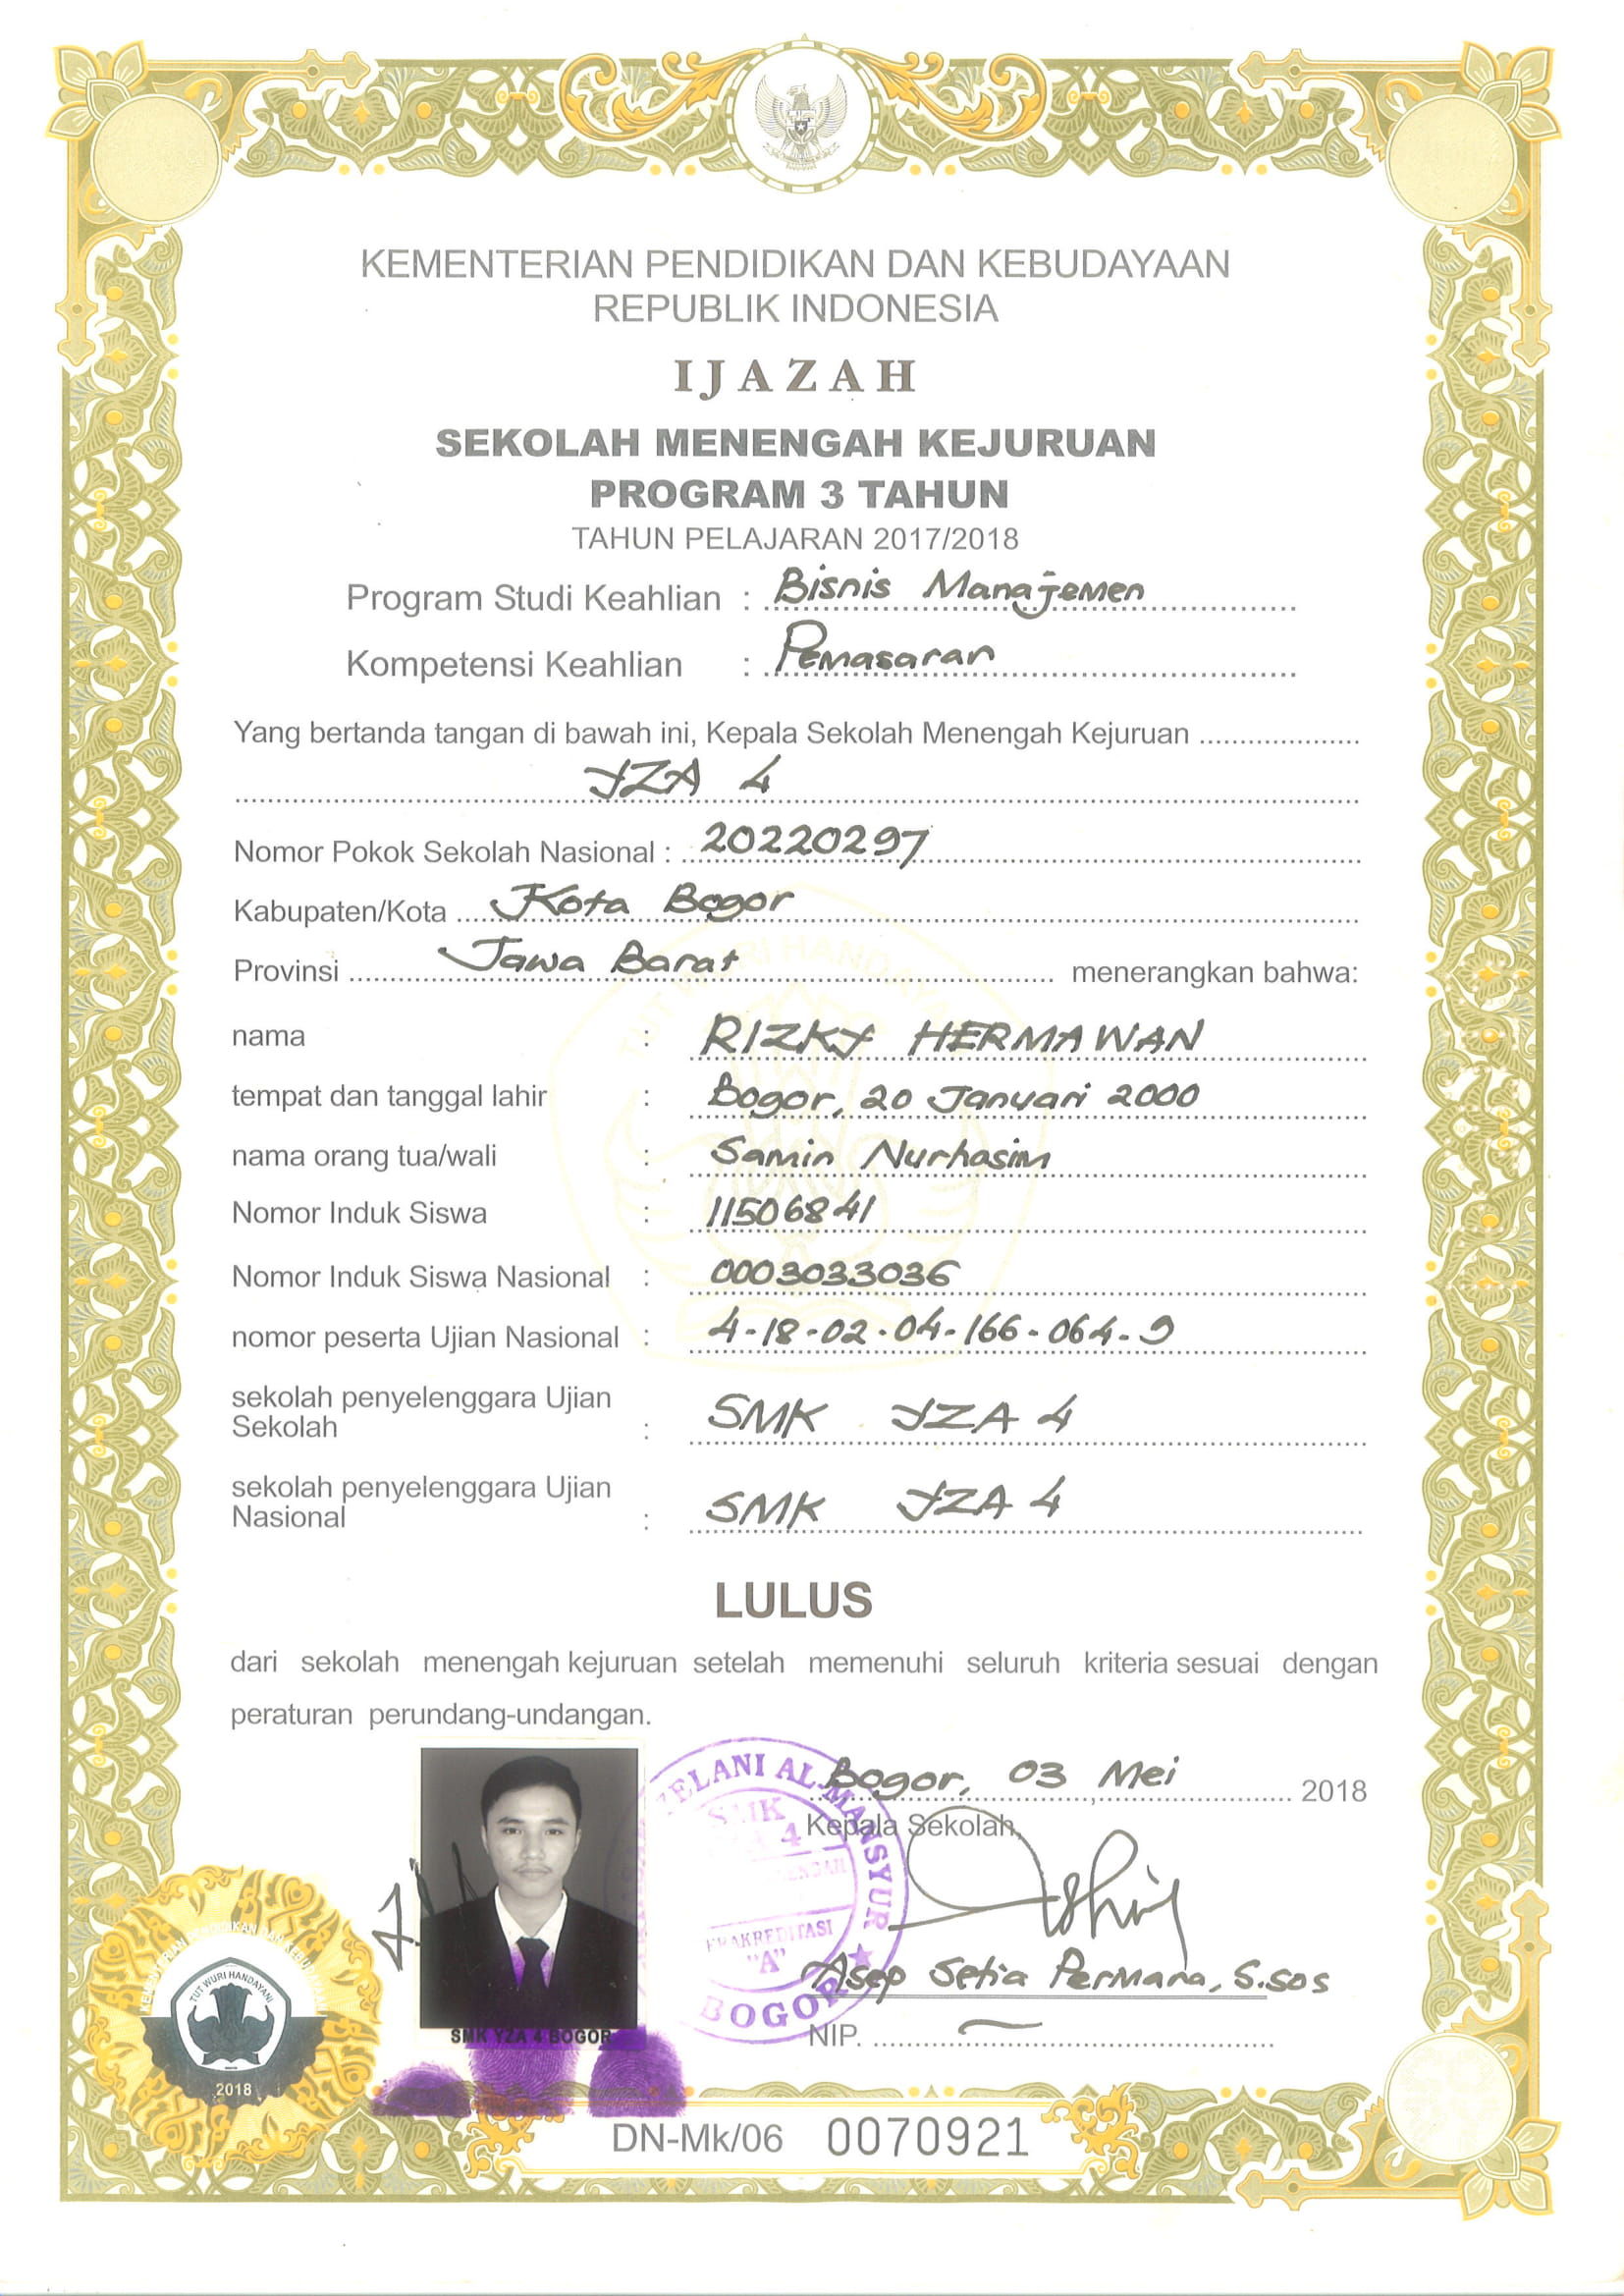 KEMENTERIAN PENDIDIKAN DAN KEBUDAYAAN
REPUBLIK INDONESIA
IJAZAH
SEKOLAH MENENGAH KEJURUAN
PROGRAM 3 TAHUN
TAHUN PELAJARAN 2017/2018
Program Studi Keahlian : Bisnis Manajemen
Kompetensi Keahlian : Pemasaran
Yang bertanda tangan di bawah ini, Kepala Sekolah Menengah Kejuruan
YZA 4
Nomor Pokok Sekolah Nasional : 20220297
Kabupaten/Kota Kota Bogor
Provinsi Jawa Barat menerangkan bahwa:
nama : RIZKY HERMAWAN
tempat dan tanggal lahir : Bogor, 20 Januari 2000
nama orang tua/wali : Samin Nurhasim
Nomor Induk Siswa : 11506841
Nomor Induk Siswa Nasional : 0003033036
nomor peserta Ujian Nasional : 4-18-02-04-166-064-9
sekolah penyelenggara Ujian
Sekolah : SMK YZA 4
sekolah penyelenggara Ujian
Nasional : SMK YZA 4
LULUS
dari sekolah menengah kejuruan setelah memenuhi seluruh kriteria sesuai dengan
peraturan perundang-undangan.
Bogor, 03 Mei 2018
Kepala Sekolah,
Asep Setia Permana, S.sos
NIP. -
SMK YZA 4 BOGOR
AL-MANSYUR
SMK
4
"A"
BOGOR
KEMENTERIAN PENDIDIKAN DAN KEBUDAYAAN
TUT WURI HANDAYANI
2018
DN-Mk/06 0070921